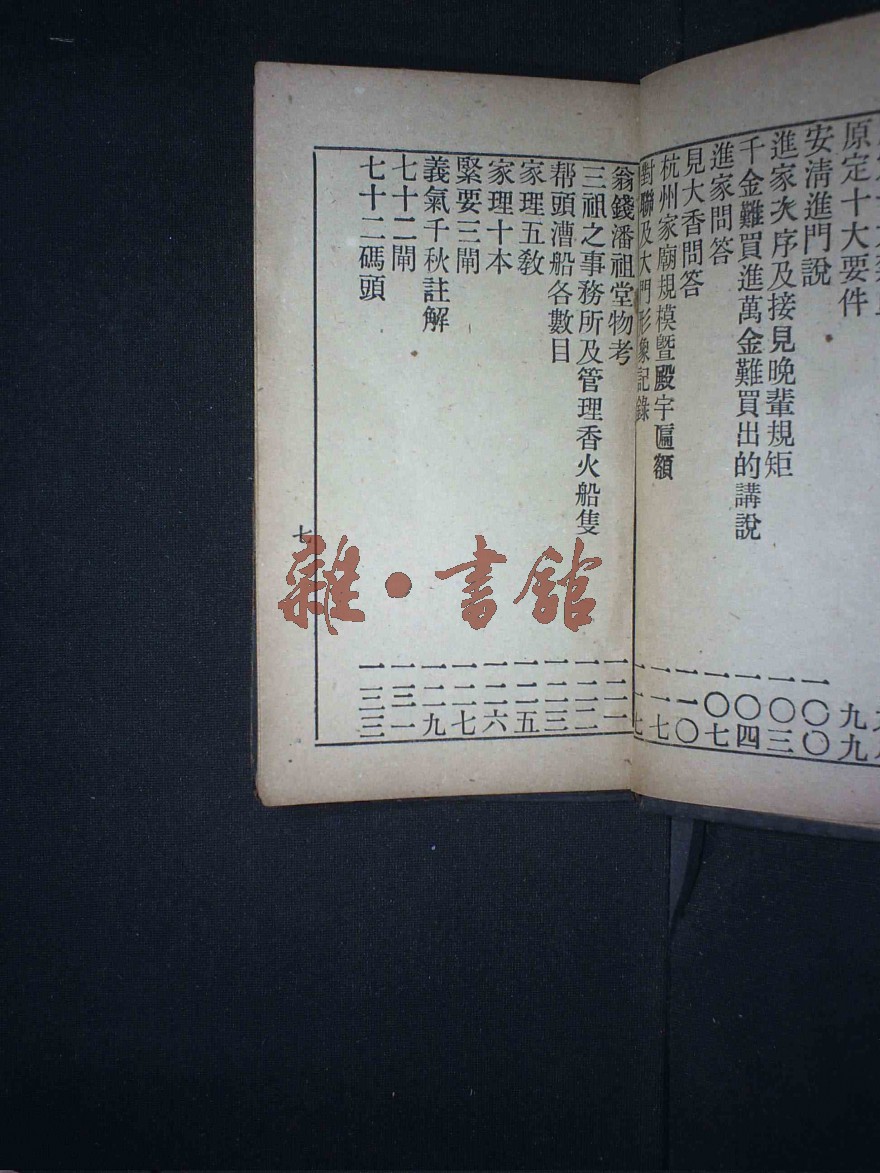 原定十大要件 九九
安清進門說 一〇〇
進家次序及接見晚輩規矩 一〇三
千金難買進萬金難買出的講說 一〇四
進家問答 一〇七
見大香問答 一一〇
杭州家廟規模暨殿宇匾額 一一七
對聯及大門形像記錄 一一七
翁錢潘祖堂物考 一二一
三祖之事務所及管理香火船隻 一二二
帮頭漕船各數目 一二三
家理五教 一二五
家理十本 一二六
緊要三閘 一二七
義氣千秋註解 一二九
七十二閘 一三一
七十二碼頭 一三三
七
雜·書館